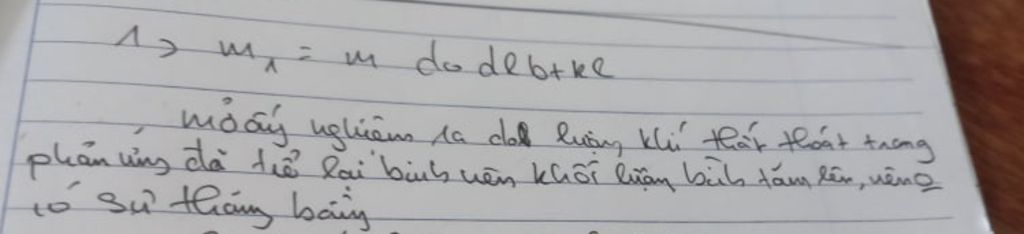 1> m₁ = m do dlbtkl
mở ống nghiệm ra do lượng khí thất thoát trong
phản ứng đã trở lại bình nên khối lượng bình tăm lên, nên
có sự thăng bằng